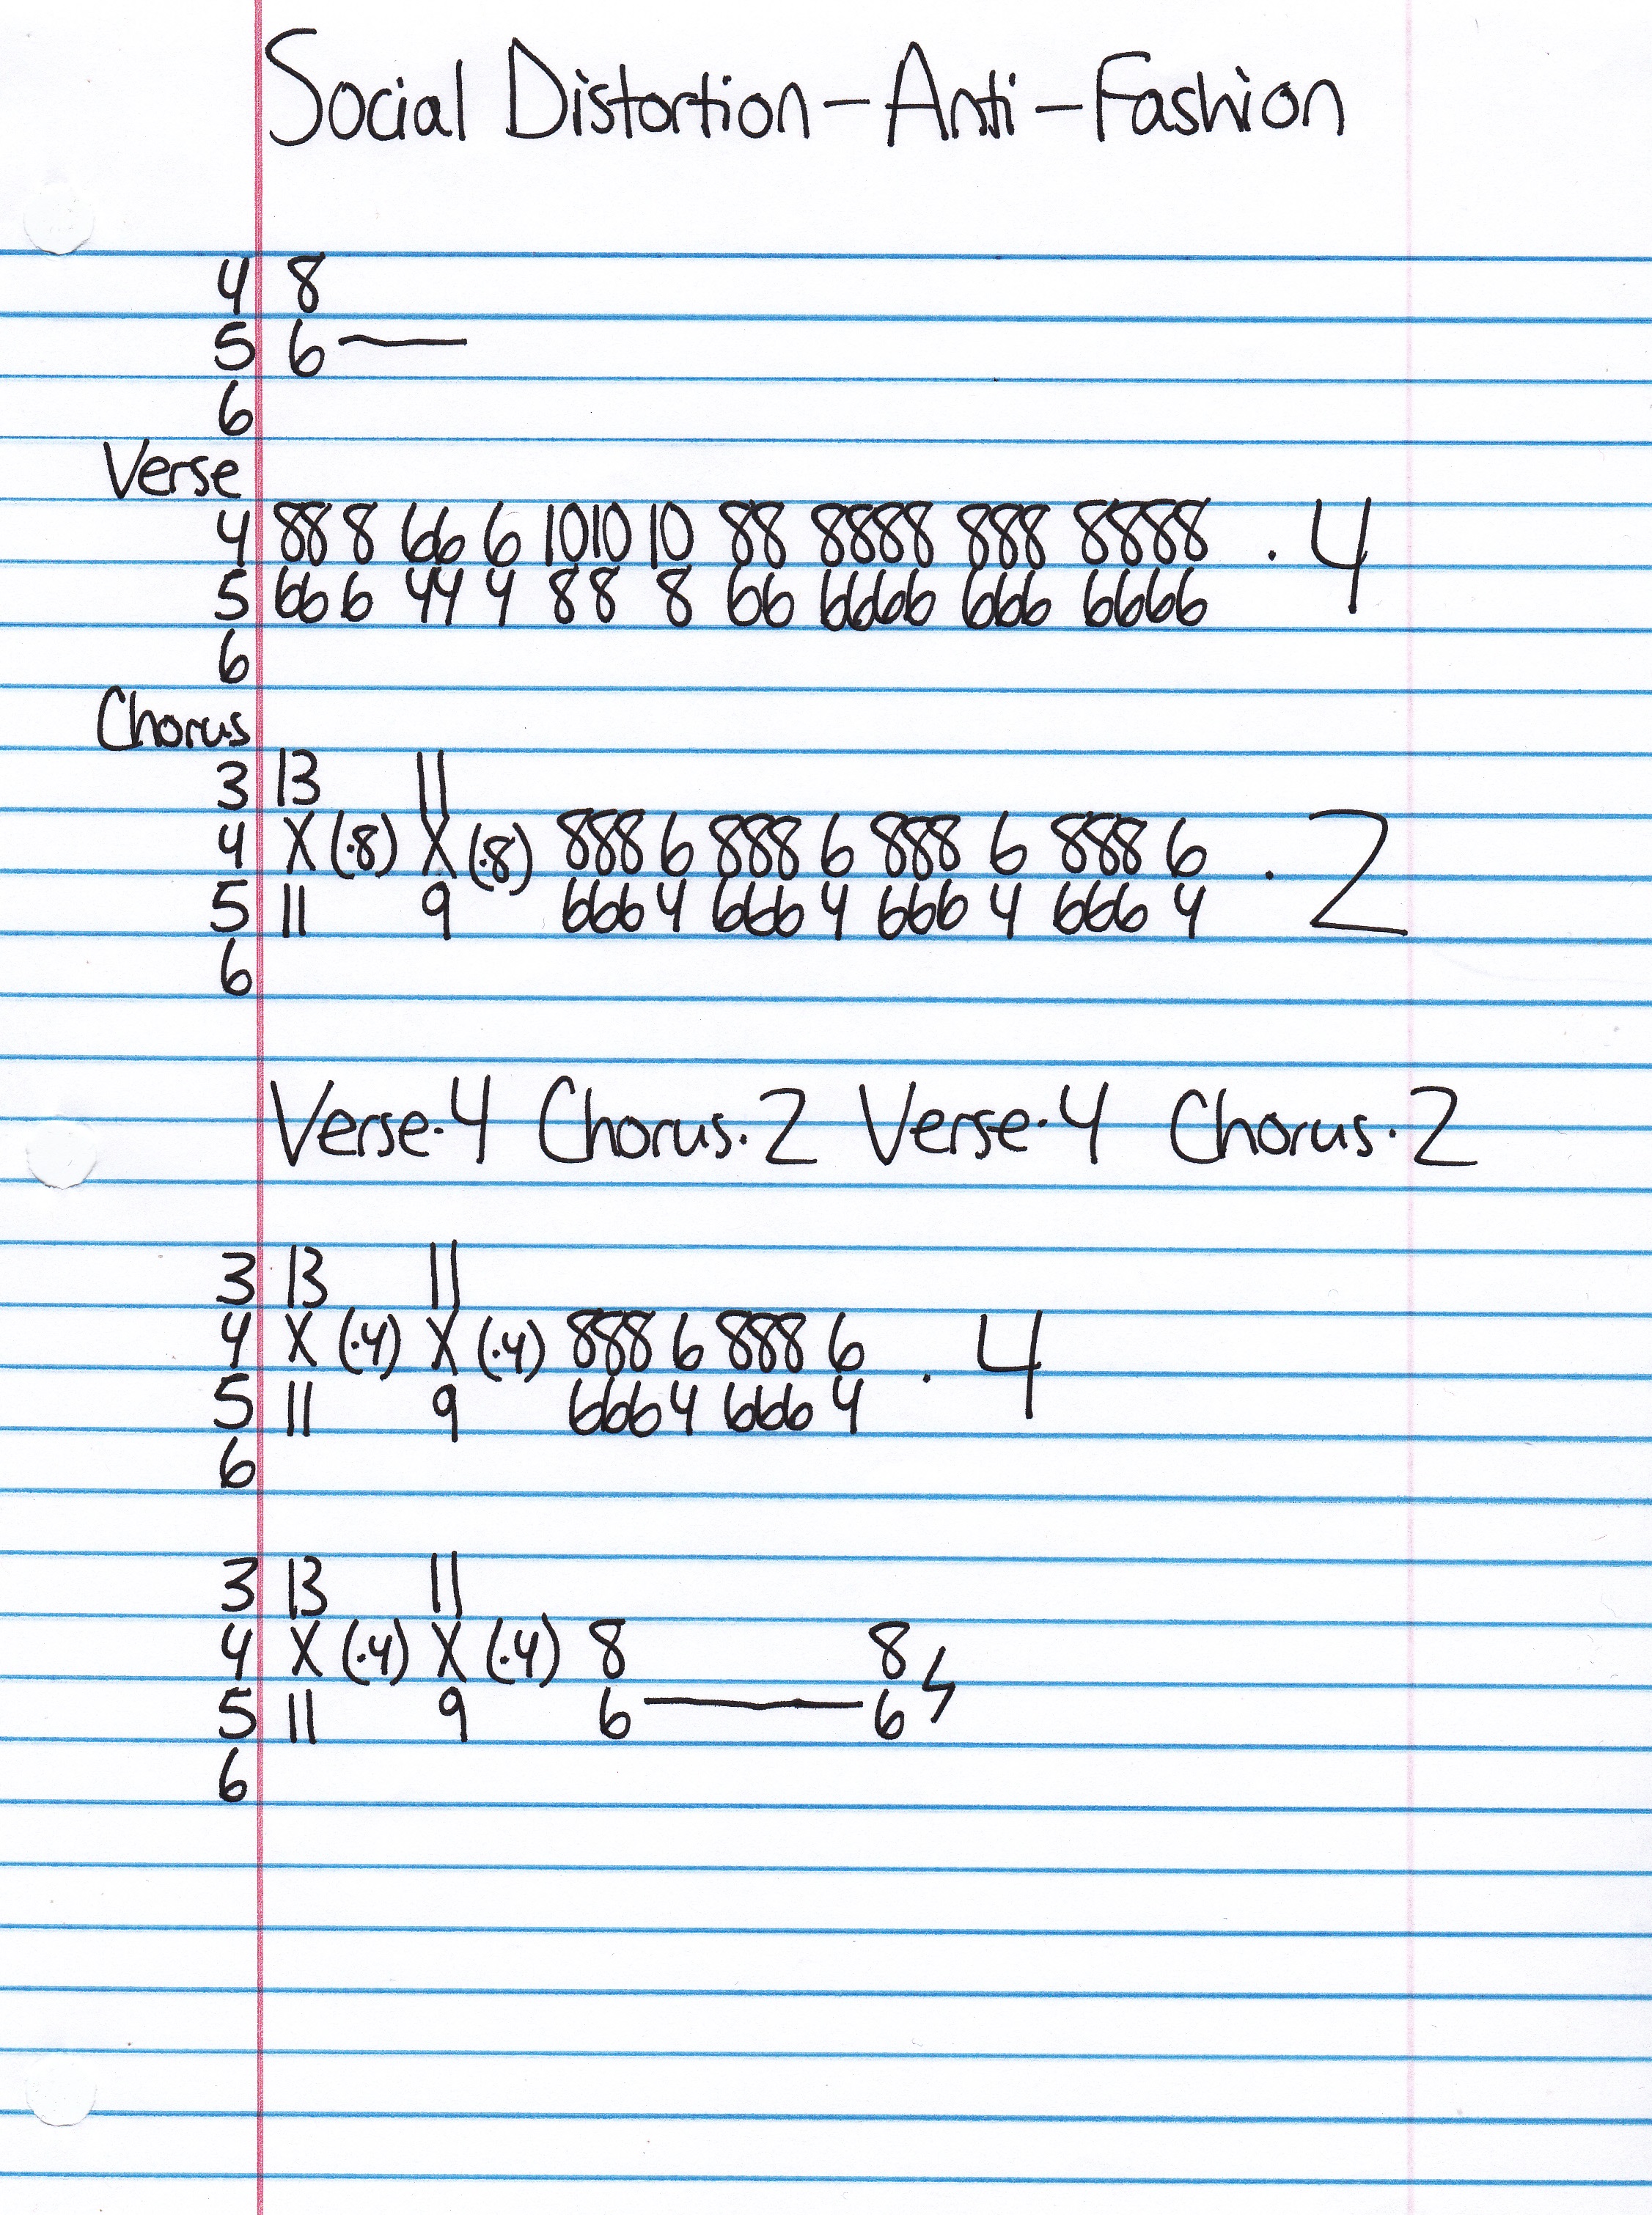 Social Distortion - Anti - Fashion
4 8
5 6 ——
6
Verse
4 88 8 66 6 1010 10 88 8888 888 8888 . 4
5 66 6 44 4 88 8 66 6666 666 6666
6
Chorus
3 13 11
4 X (·8) X (·8) 888 6 888 6 888 6 888 6 . 2
5 11 9 666 4 666 4 666 4 666 4
6
Verse·4 Chorus·2 Verse·4 Chorus·2
3 13 11
4 X (·4) X (·4) 888 6 888 6 . 4
5 11 9 666 4 666 4
6
3 13 11
4 X (·4) X (·4) 8 8
5 11 9 6 —— 6
6